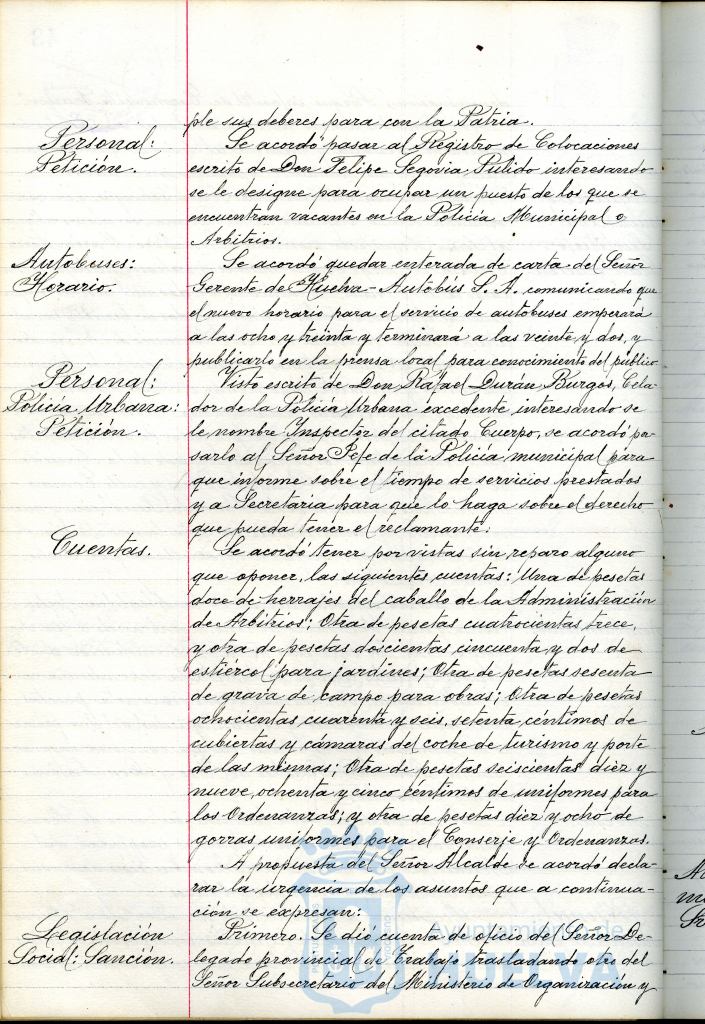 ple sus deberes para con la Patria.
Personal:
Petición.
Se acordó pasar al Registro de Colocaciones
escrito de Don Felipe Segovia Pulido interesando
se le designe para ocupar un puesto de los que se
encuentran vacantes en la Policía Municipal o
Arbitrios.
Autobuses:
Horario.
Se acordó quedar enterada de carta del Señor
Gerente de Huelva-Autobus S. A. comunicando que
el nuevo horario para el servicio de autobuses empezará
a las ocho y treinta y terminará a las veinte y dos, y
publicarlo en la prensa local para conocimiento del público.
Personal:
Policía Urbana:
Petición.
Visto escrito de Don Rafael Durán Burgos, Cela-
dor de la Policía Urbana excedente interesando se
le nombre Inspector del citado Cuerpo, se acordó pa-
sarlo al Señor Jefe de la Policía municipal para
que informe sobre el tiempo de servicios prestados
y a Secretaria para que lo haga sobre el derecho
que pueda tener el reclamante.
Cuentas.
Se acordó tener por vistas sin reparo alguno
que oponer, las siguientes cuentas: Una de pesetas
doce de herrajes del caballo de la Administración
de Arbitrios; Otra de pesetas cuatrocientas trece,
y otra de pesetas doscientas cincuenta y dos de
estiércol para jardines; Otra de pesetas sesenta
de grava de campo para obras; Otra de pesetas
ochocientas cuarenta y seis, setenta céntimos de
cubiertas y cámaras del coche de turismo y porte
de las mismas; Otra de pesetas seiscientas diez y
nueve, ochenta y cinco céntimos de uniformes para
los Ordenanzas; y otra de pesetas diez y ocho de
gorras uniformes para el Conserje y Ordenanzas.
A propuesta del Señor Alcalde se acordó decla-
rar la urgencia de los asuntos que a continua-
ción se expresan:
Legislación
Social: Sanción.
Primero. Se dió cuenta de oficio del Señor De-
legado provincial de Trabajo trasladando otro del
Señor Subsecretario del Ministerio de Organización y
Ayuntamiento de
HUELVA